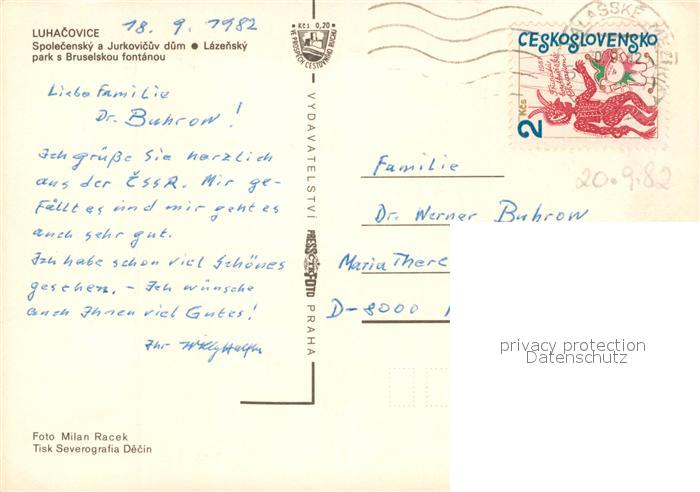 18. 9. 1982
LUHAČOVICE
Společenský a Jurkovičův dům ● Lázeňský
park s Bruselskou fontánou
Liebe Familie
Dr. Buhrow!
Ich grüße Sie herzlich
aus der ČSSR. Mir ge-
fällt es und mir geht es
auch sehr gut.
Ich habe schon viel Schönes
gesehen. – Ich wünsche
auch Ihnen viel Gutes!
Ihr Willy
Foto Milan Racek
Tisk Severografia Děčín
Kčs 0,20
VE PROSPĚCH CESTOVNÍHO RUCHU
VYDAVATELSTVÍ
PRESSFOTO
PRAHA
ČESKOSLOVENSKO
2 Kčs
20.9.82
Familie
Dr. Werner Buhrow
Maria There
D-8000
privacy protection
Datenschutz